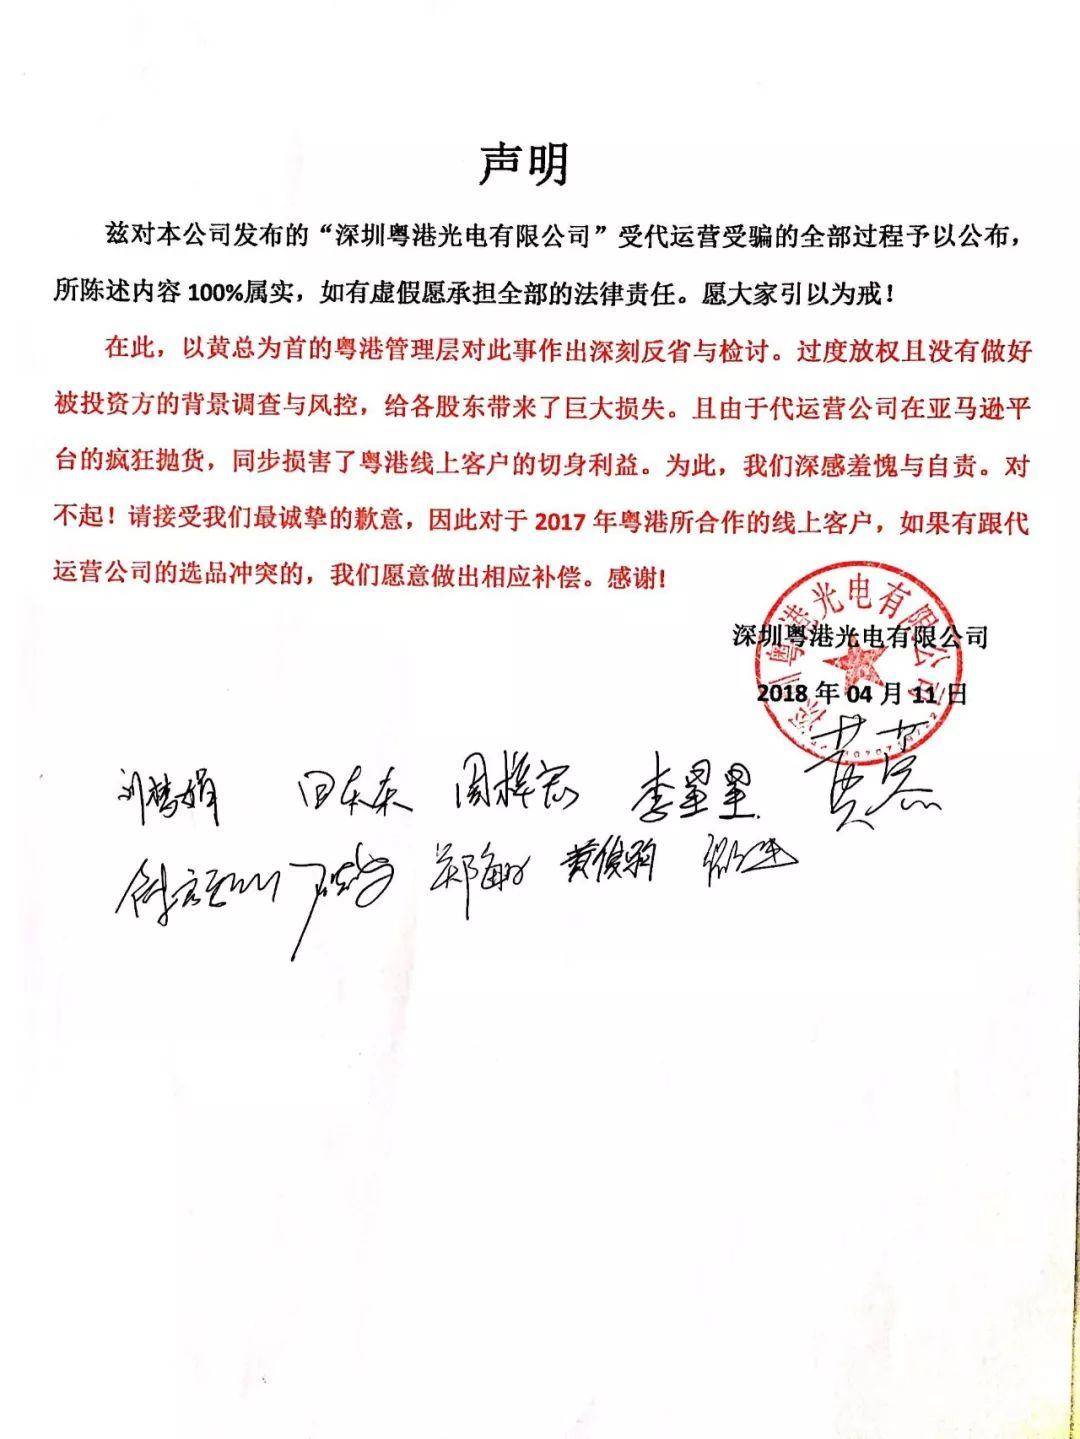 声明
兹对本公司发布的“深圳粤港光电有限公司”受代运营受骗的全部过程予以公布，
所陈述内容 100%属实，如有虚假愿承担全部的法律责任。愿大家引以为戒！
在此，以黄总为首的粤港管理层对此事作出深刻反省与检讨。过度放权且没有做好
被投资方的背景调查与风控，给各股东带来了巨大损失。且由于代运营公司在亚马逊平
台的疯狂抛货，同步损害了粤港线上客户的切身利益。为此，我们深感羞愧与自责。对
不起！请接受我们最诚挚的歉意，因此对于 2017 年粤港所合作的线上客户，如果有跟代
运营公司的选品冲突的，我们愿意做出相应补偿。感谢!
深圳粤港光电有限公司
深圳粤港光电有限公司
2018 年 04 月 11 日
刘梦娟 李星星
郑海 黄俊驹